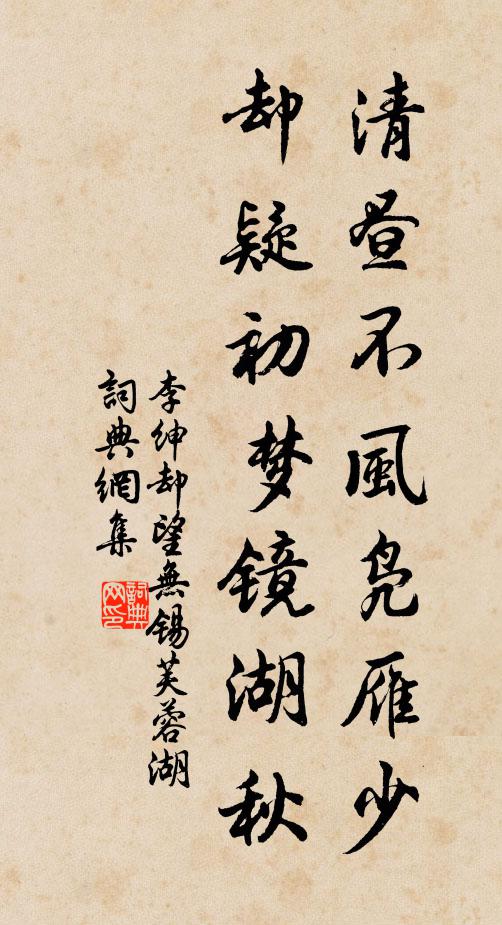 清昼不風凫雁少
却疑初梦镜湖秋
李绅却望無锡芙蓉湖
詞典網集
詞典
网印